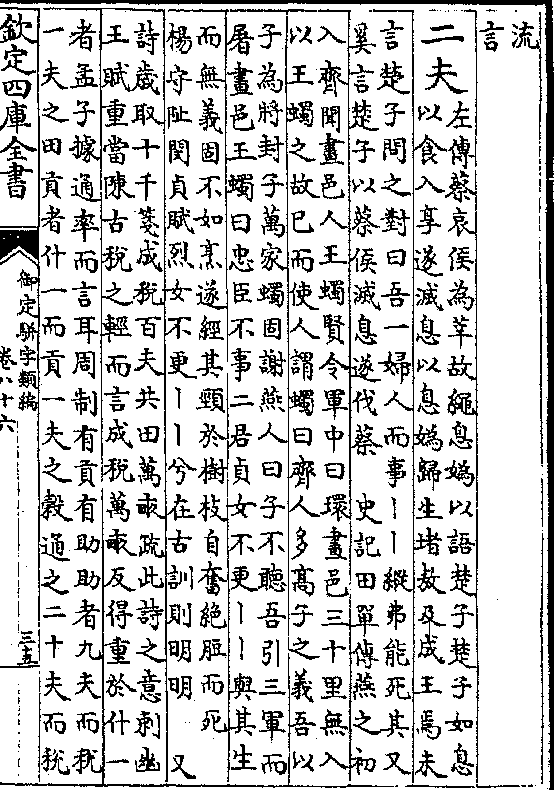 流
言
二夫
左傳蔡哀侯為莘故繩息媯以語楚子楚子如息
以食入享遂滅息以息媯歸生堵敖及成王焉未
言楚子問之對曰吾一婦人而事丨丨縱弗能死其又
奚言楚子以蔡侯滅息遂伐蔡　史記田單傳燕之初
入齊聞畫邑人王蠋賢令軍中曰環畫邑三十里無入
以王蠋之故已而使人謂蠋曰齊人多髙子之義吾以
子為將封子萬家蠋固謝燕人曰子不聽吾引三軍而
屠畫邑王蠋曰忠臣不事二君貞女不更丨丨與其生
而無義固不如烹遂經其頸於樹枝自奮絕脰而死
楊守阯閔貞賦烈女不更丨丨兮在古訓則明明　又
詩歲取十千箋成稅百夫共田萬畝疏此詩之意刺幽
王賦重當陳古稅之輕而言成稅萬畝反得重於什一
者孟子據通率而言耳周制有貢有助助者九夫而稅
一夫之田貢者什一而貢一夫之穀通之二十夫而稅
欽定四庫全書
御定駢字類編
卷八十六
三五